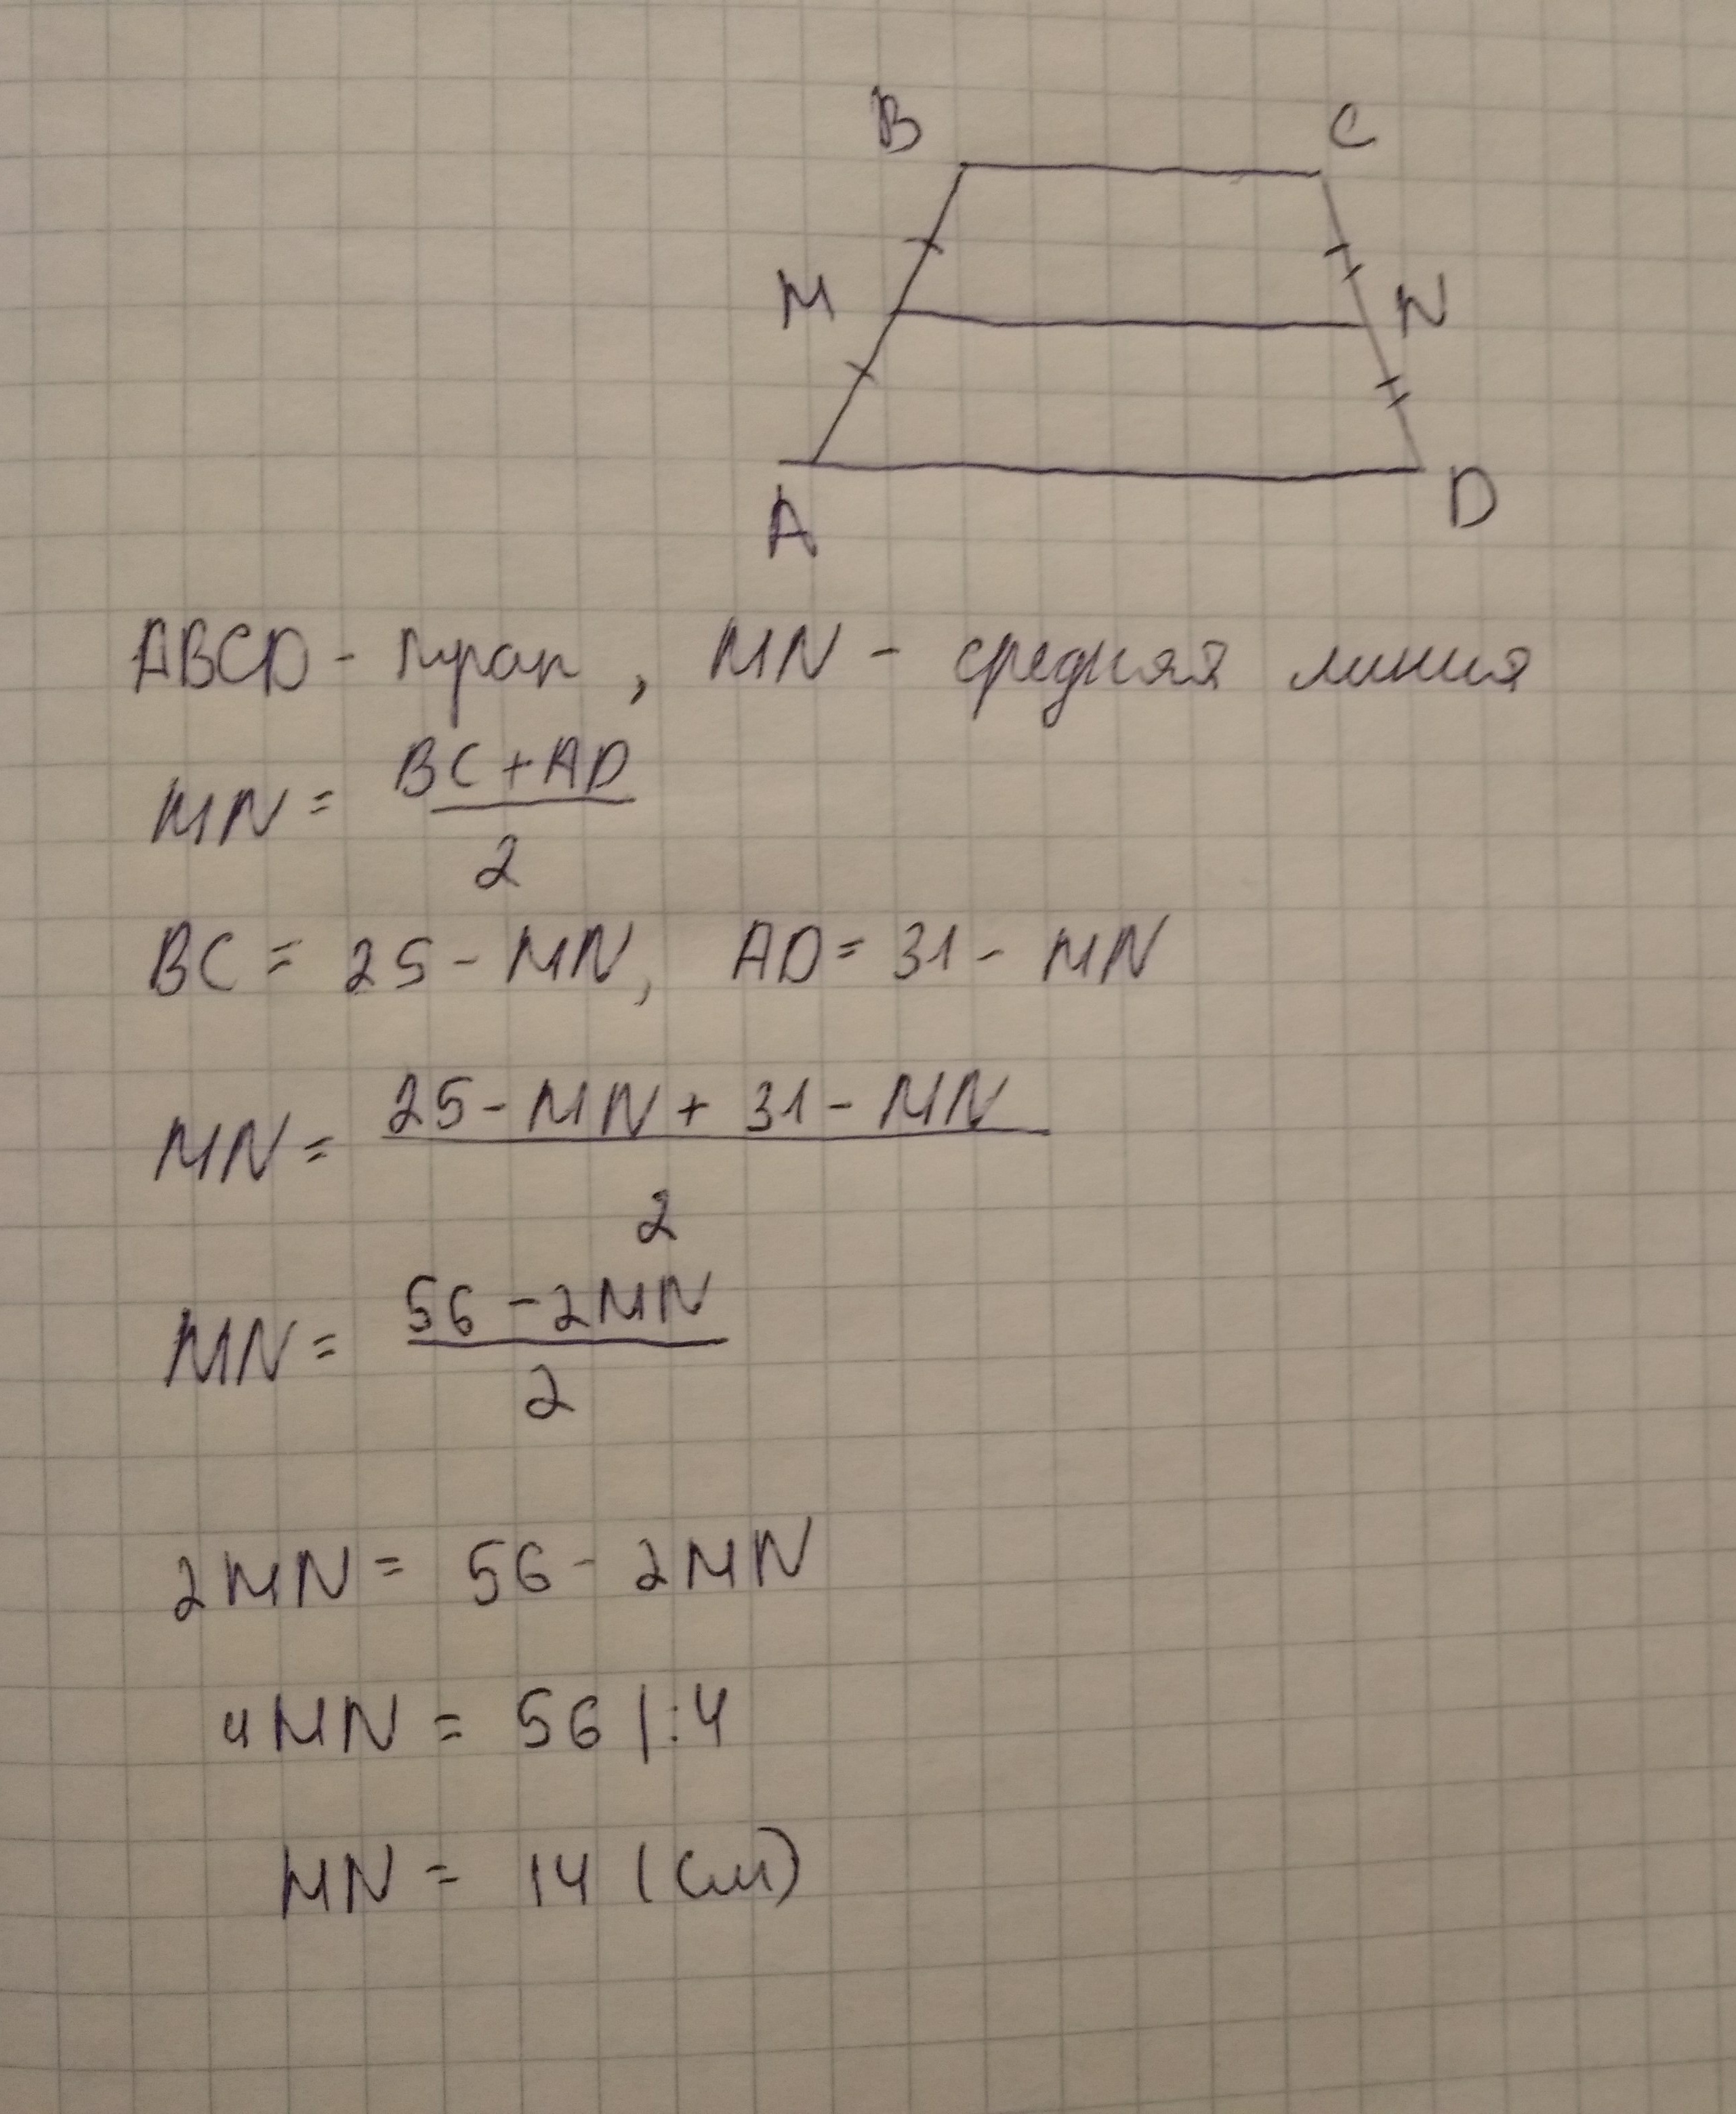 B C
M N
A D
ABCD - трап, MN - средняя линия
MN = (BC + AD) / 2
BC = 25 - MN, AD = 31 - MN
MN = (25 - MN + 31 - MN) / 2
MN = (56 - 2MN) / 2
2MN = 56 - 2MN
4MN = 56 |:4
MN = 14 (см)